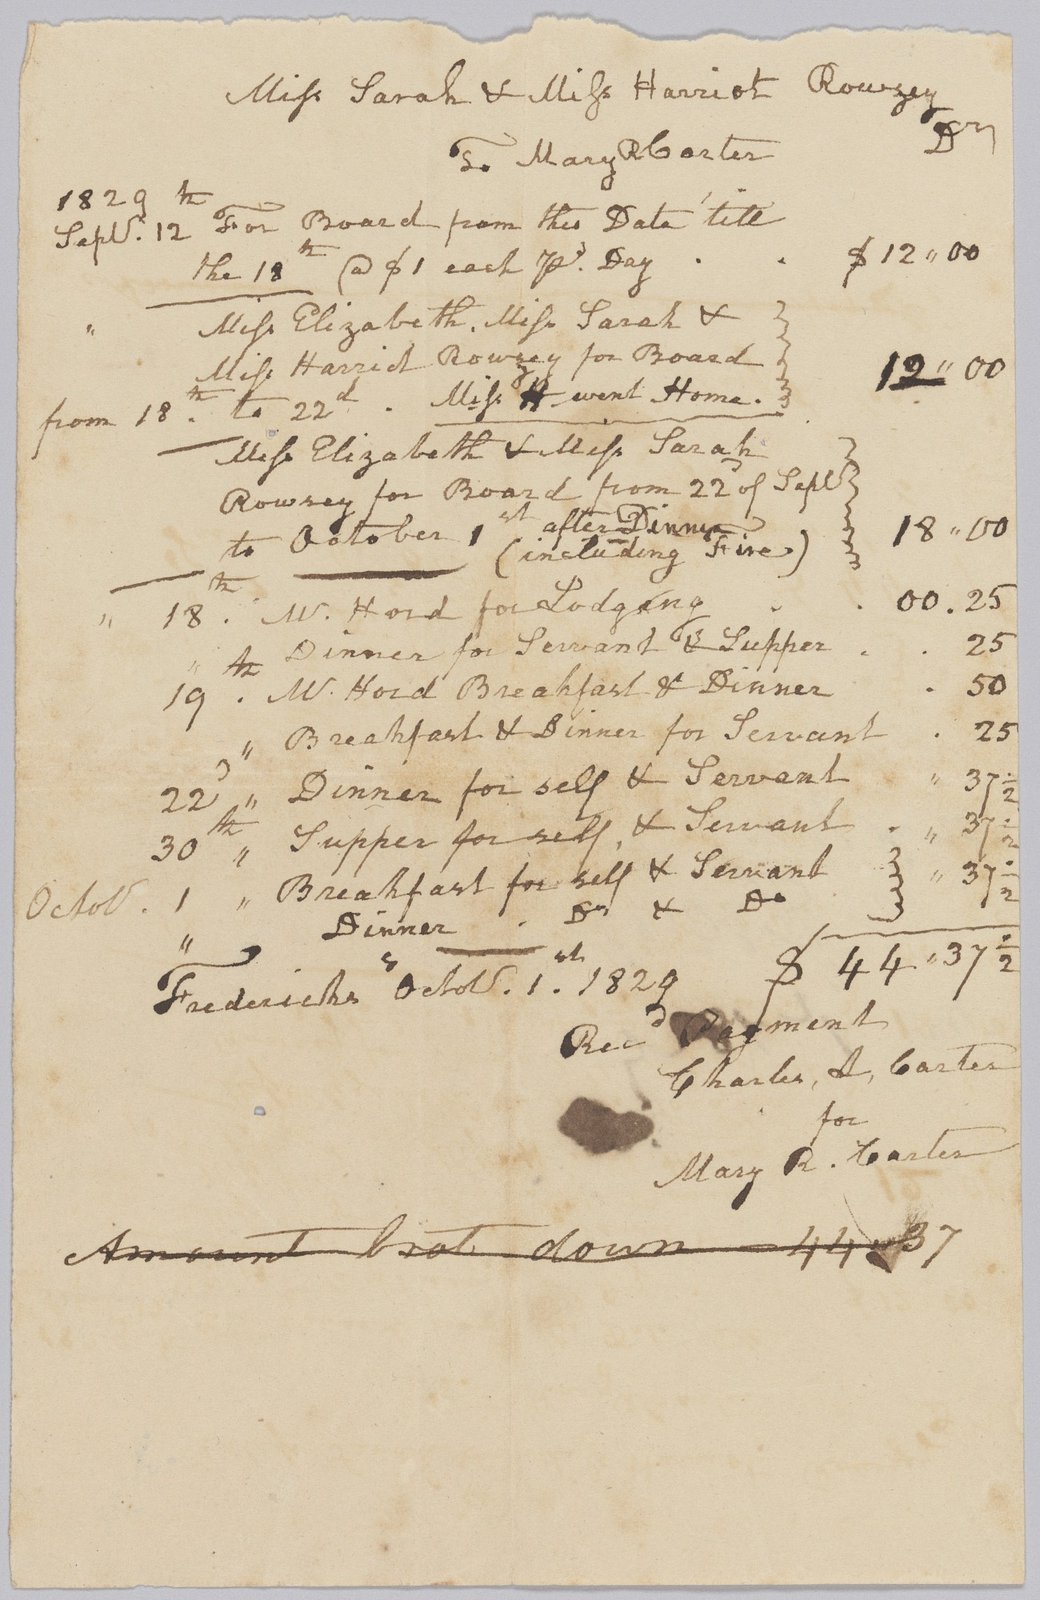 Miss Sarah & Miss Harriot Rowzey
Dr
To Mary R Carter
1829
Sept. 12th For Board from this Date till
the 18th @ $1 each pr. Day . . $ 12 " 00
" Miss Elizabeth, Miss Sarah &
Miss Harriet Rowzey for Board 12 " 00
from 18th. to 22d . Miss H went Home.
Miss Elizabeth & Miss Sarah
Rowzey for Board from 22d of Sept
to October 1st after Dinner 18 " 00
(including Fire)
" 18th . W. Hord for Lodging . . 00 . 25
" Dinner for Servant & Supper . . 25
19th . W. Hord Breakfast & Dinner . 50
" Breakfast & Dinner for Servant . 25
22d " Dinner for self & Servant " 37½
30th " Supper for self, & Servant . " 37½
Octob. 1 " Breakfast for self & Servant " 37½
" Dinner . Do & Do
$ 44 " 37½
Fredericks Octob. 1st. 1829
Recd Payment
Charles, A, Carter
for
Mary R. Carter
Amount brot down 44 " 37